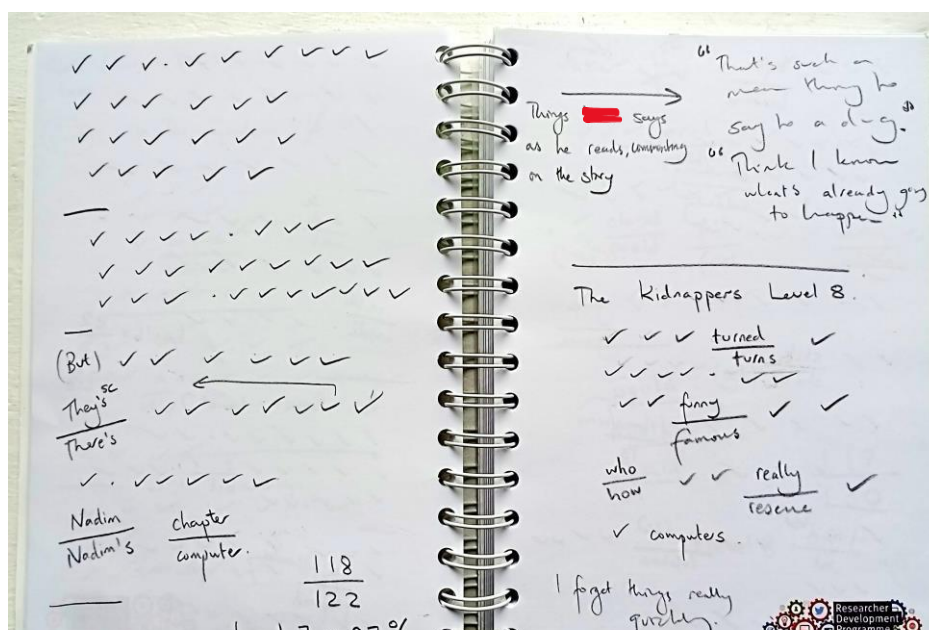 ✓ ✓ ✓ . ✓ ✓ ✓ ✓ ✓ ✓
✓ ✓ ✓ ✓ ✓ ✓
✓ ✓ ✓ ✓ ✓ ✓
✓ ✓ ✓ ✓ ✓
✓ ✓ ✓ ✓ . ✓ ✓ ✓
✓ ✓ ✓ ✓ ✓ ✓ ✓ ✓ ✓
✓ ✓ ✓ . ✓ ✓ ✓ ✓ ✓ ✓ ✓
(But) ✓ ✓ ✓ ✓ ✓ ✓
They's sc ✓ ✓ ✓ ✓ ✓ ✓ ✓
There's
✓ . ✓ ✓ ✓ ✓ ✓
Nadim chapter
Nadim's computer.
118
122
Things says
as he reads, commenting
on the story
"That's such a
mean thing to
say to a dog."
"Think I know
what's already going
to happen"
The Kidnappers Level 8.
✓ ✓ ✓ turned ✓
turns
✓ ✓ ✓ ✓ . ✓ ✓
✓ ✓ funny ✓ ✓
famous
who ✓ ✓ really ✓
how rescue
✓ computers.
I forget things really
quickly.
Researcher
Development
Programme &